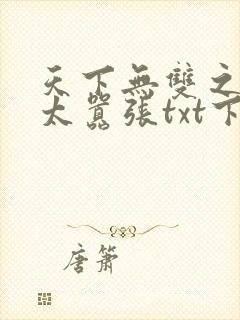 天下無雙之
太囂張txt下
唐箫